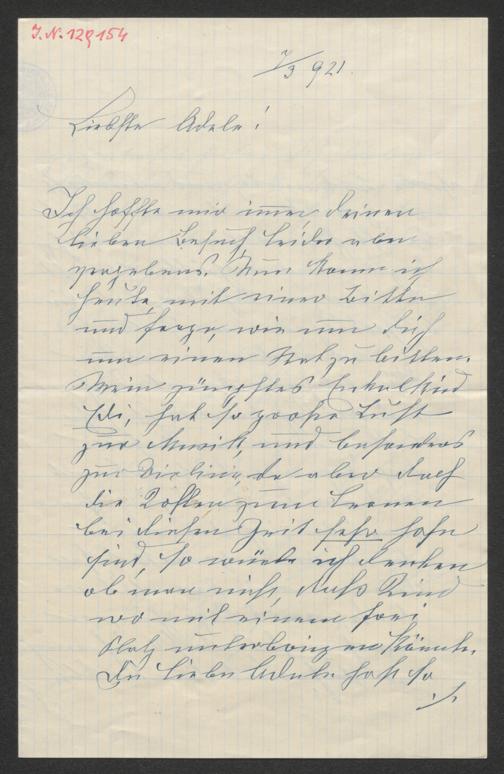 I.N. 129154
7/3 921.
Liebste Adele!
Ich hoffte mir immer deinen
lieben Besuch leider aber
vergebens. Nun komme ich
heute, mit einer Bitte
und frage, wie um dich
um einen Rat zu bitten.
Mein jüngstes Enkelkind
Edi, hat so große Lust
zur Musik, und besonders
zur Violine, da aber doch
die Kosten zum lernen
bei dieser Zeit sehr hohe
sind, so würde ich denken
ob man nicht, das Kind
wo mit einem frei
Platz unterbringen könnte.
Du liebe Adele hast so
./.